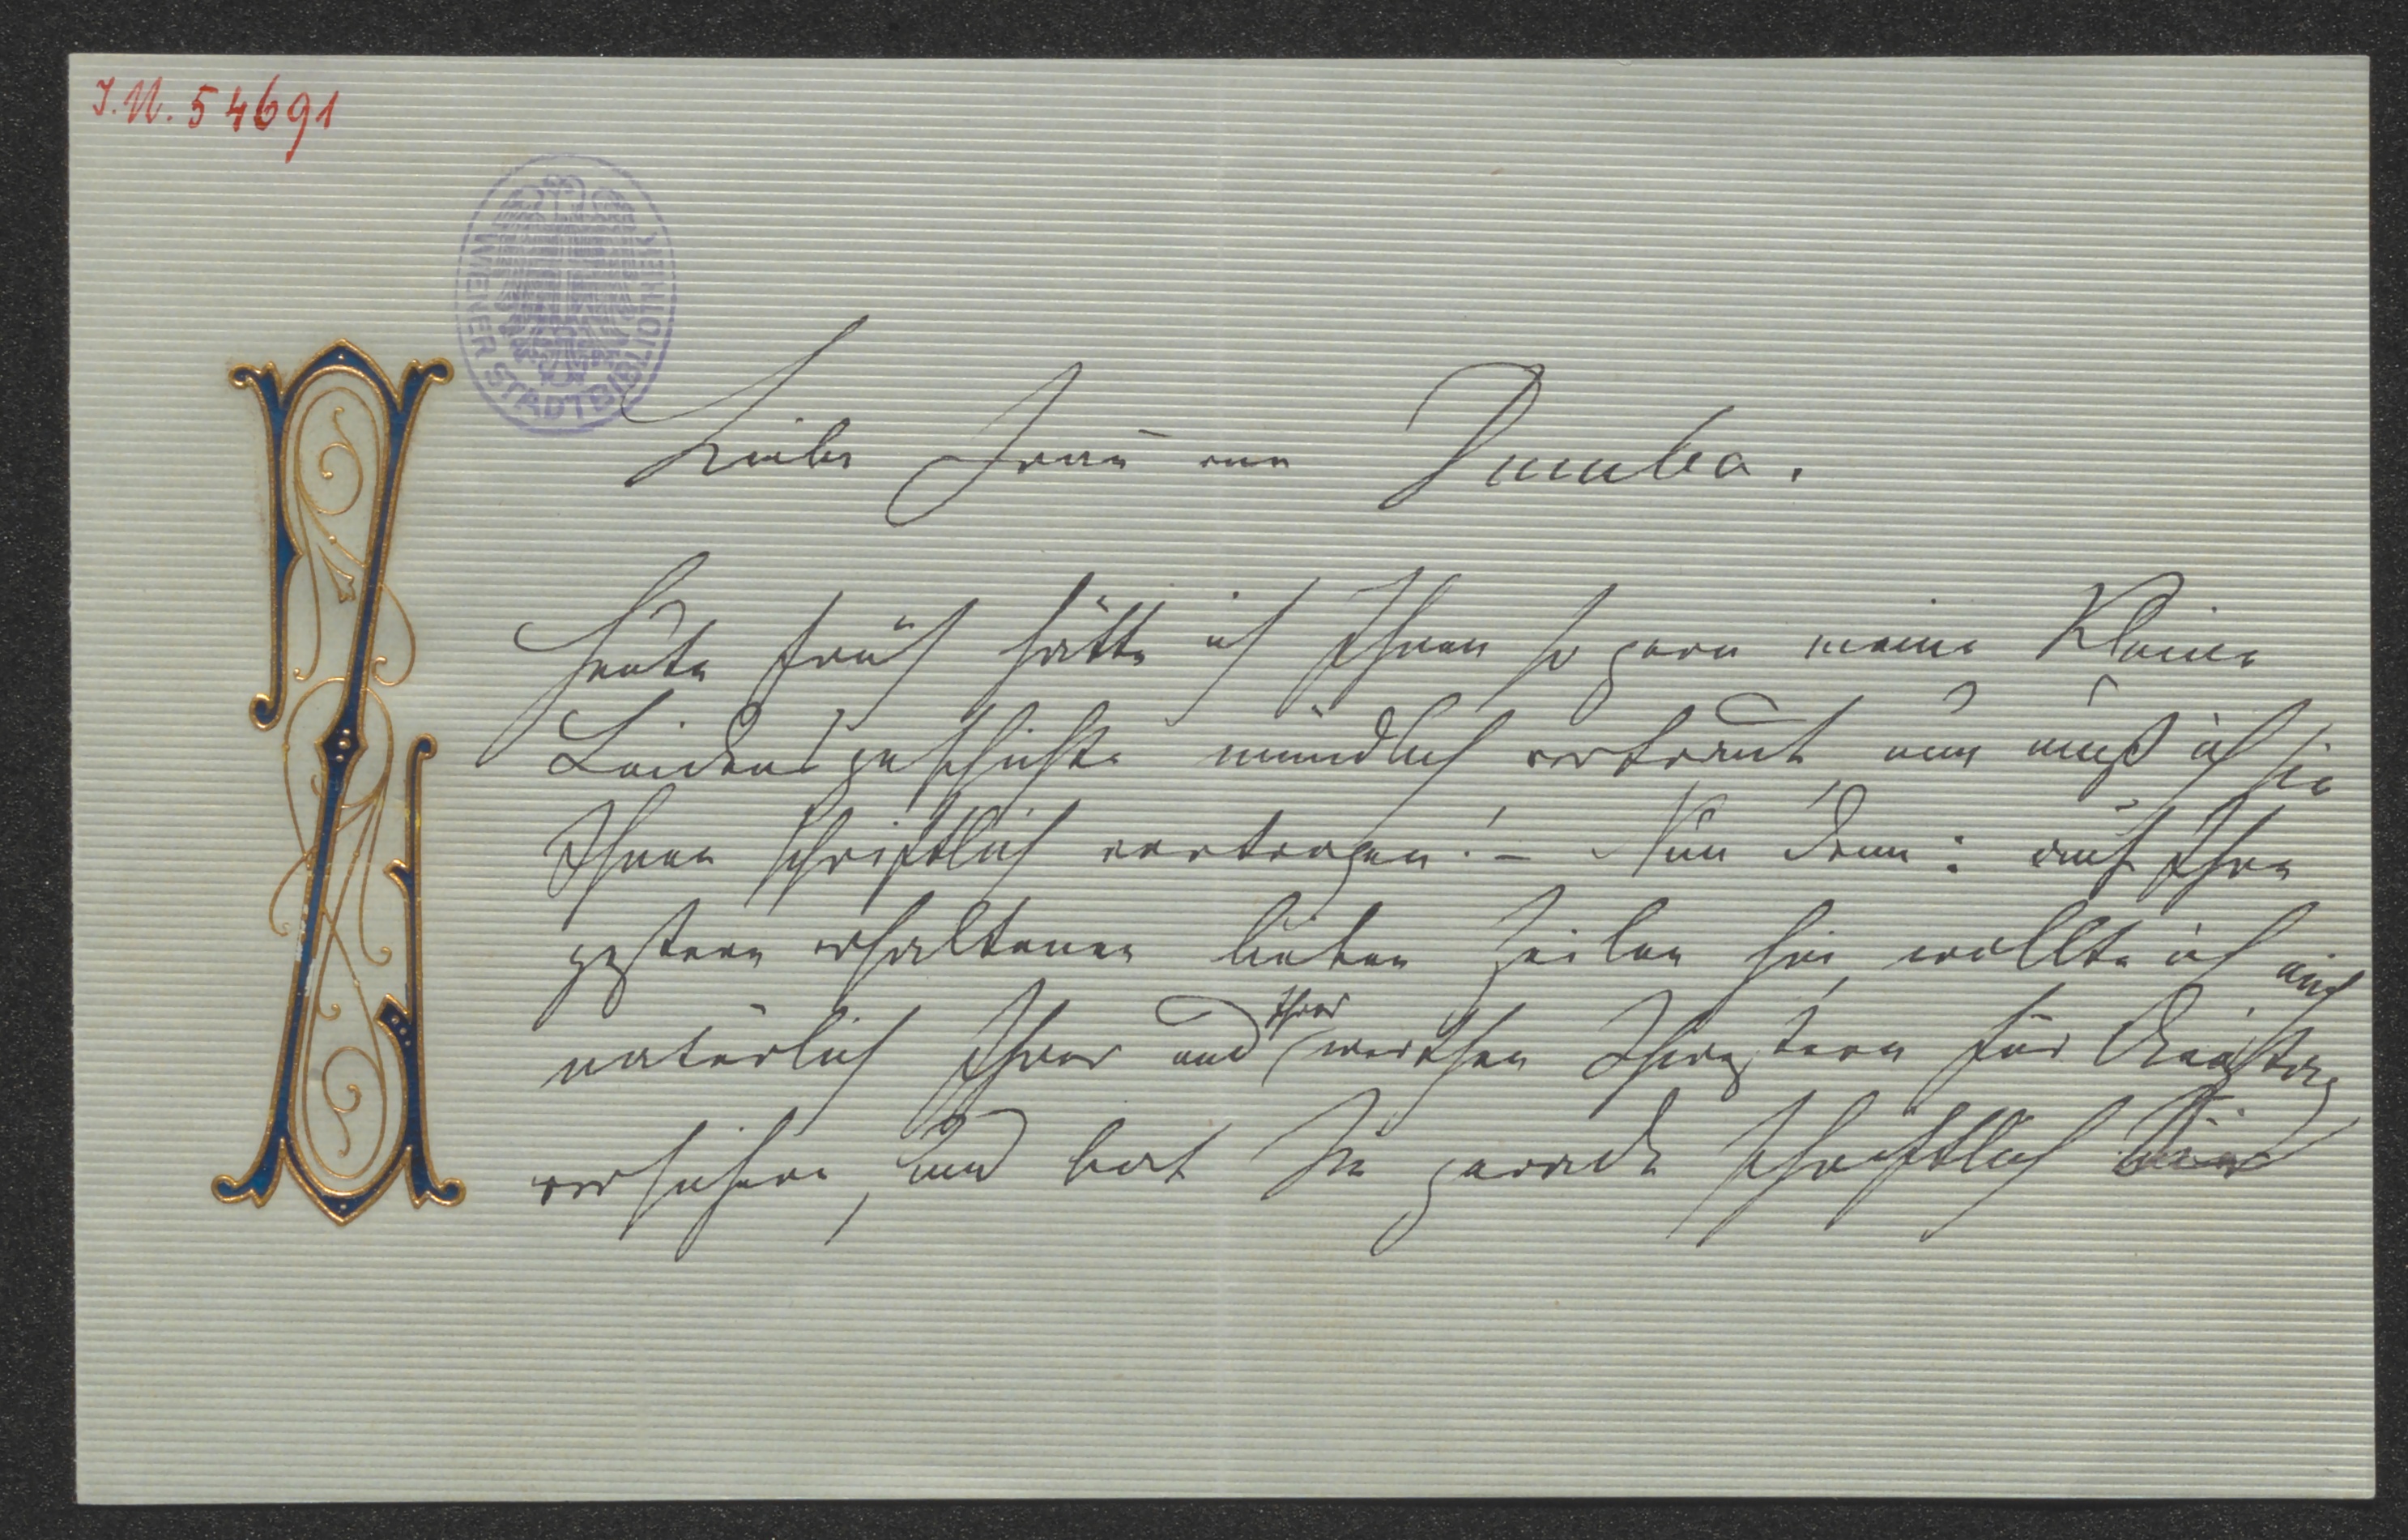 I.N. 54691
WIENER STADTBIBLIOTHEK
Liebe Frau von Dumba.
Heute früh hätte ich Ihnen so gern meine kleine
Leidensgeschichte mündlich vertraut nun muß ich sie
Ihnen schriftlich vortragen! – Nun denn: auf Ihre
gestern erhaltenen lieben Zeilen hin, wollte ich mich
natürlich Ihrer und Ihrer werthen Schwestern für Dienstag
versichern, und bat Sie gerade schriftlich